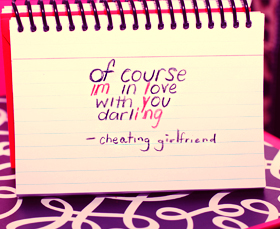 of course
im in love
with you
darling
- cheating girlfriend